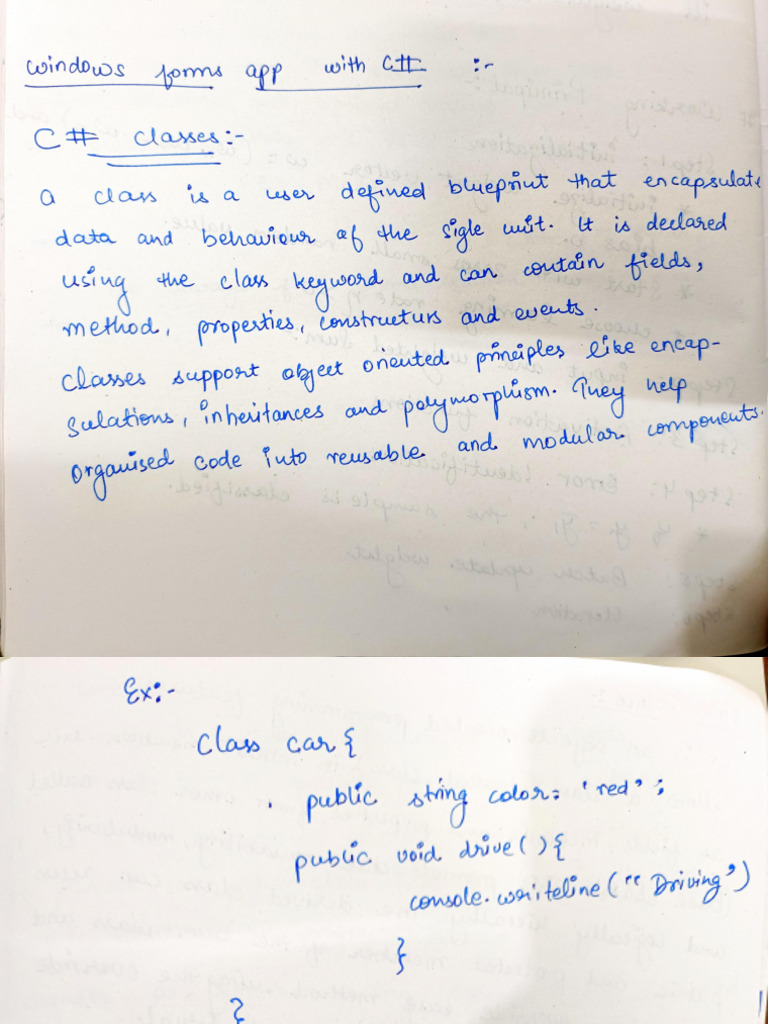 windows forms app with C# :-
C# classes:-
A class is a user defined blueprint that encapsulate
data and behaviour of the sigle unit. It is declared
using the class keyword and can contain fields,
method, properties, constructurs and events.
Classes support object oriented principles like encap-
sulations, inheritances and polymorphism. They help
organised code into reusable and modular components.
Ex:-
Class car {
public string color = 'red';
public void drive() {
console.writeline("Driving")
}
}